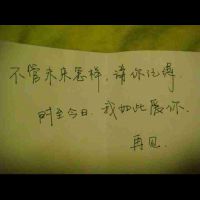 不管未来怎样，请你记得
时至今日，我如此爱你．
再见．